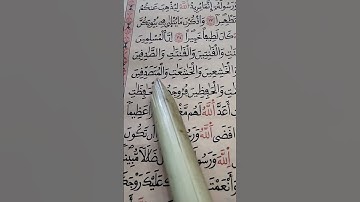 وَرَسُولَهُ إِنَّمَا يُرِيدُ اللَّهُ لِيُذْهِبَ عَنكُمُ
تَطْهِيرًا ٣٣ وَاذْكُرْنَ مَا يُتْلَىٰ فِي بُيُوتِكُنَّ
كَانَ لَطِيفًا خَبِيرًا ٣٤ إِنَّ الْمُسْلِمِينَ
وَالْقَٰنِتِينَ وَالْقَٰنِتَٰتِ وَالصَّٰدِقِينَ
وَالْخَٰشِعِينَ وَالْخَٰشِعَٰتِ وَالْمُتَصَدِّقِينَ
وَالْحَٰفِظِينَ فُرُوجَهُمْ وَالْحَٰفِظَٰتِ
أَعَدَّ اللَّهُ لَهُم عَظِيمًا
قَضَى اللَّهُ وَرَسُولُهُ أَن يَكُونَ
اللَّهَ وَرَسُولَهُ ضَلَٰلًا مُّبِينًا
وَأَنْعَمْتَ عَلَيْكَ زَوْجَكَ